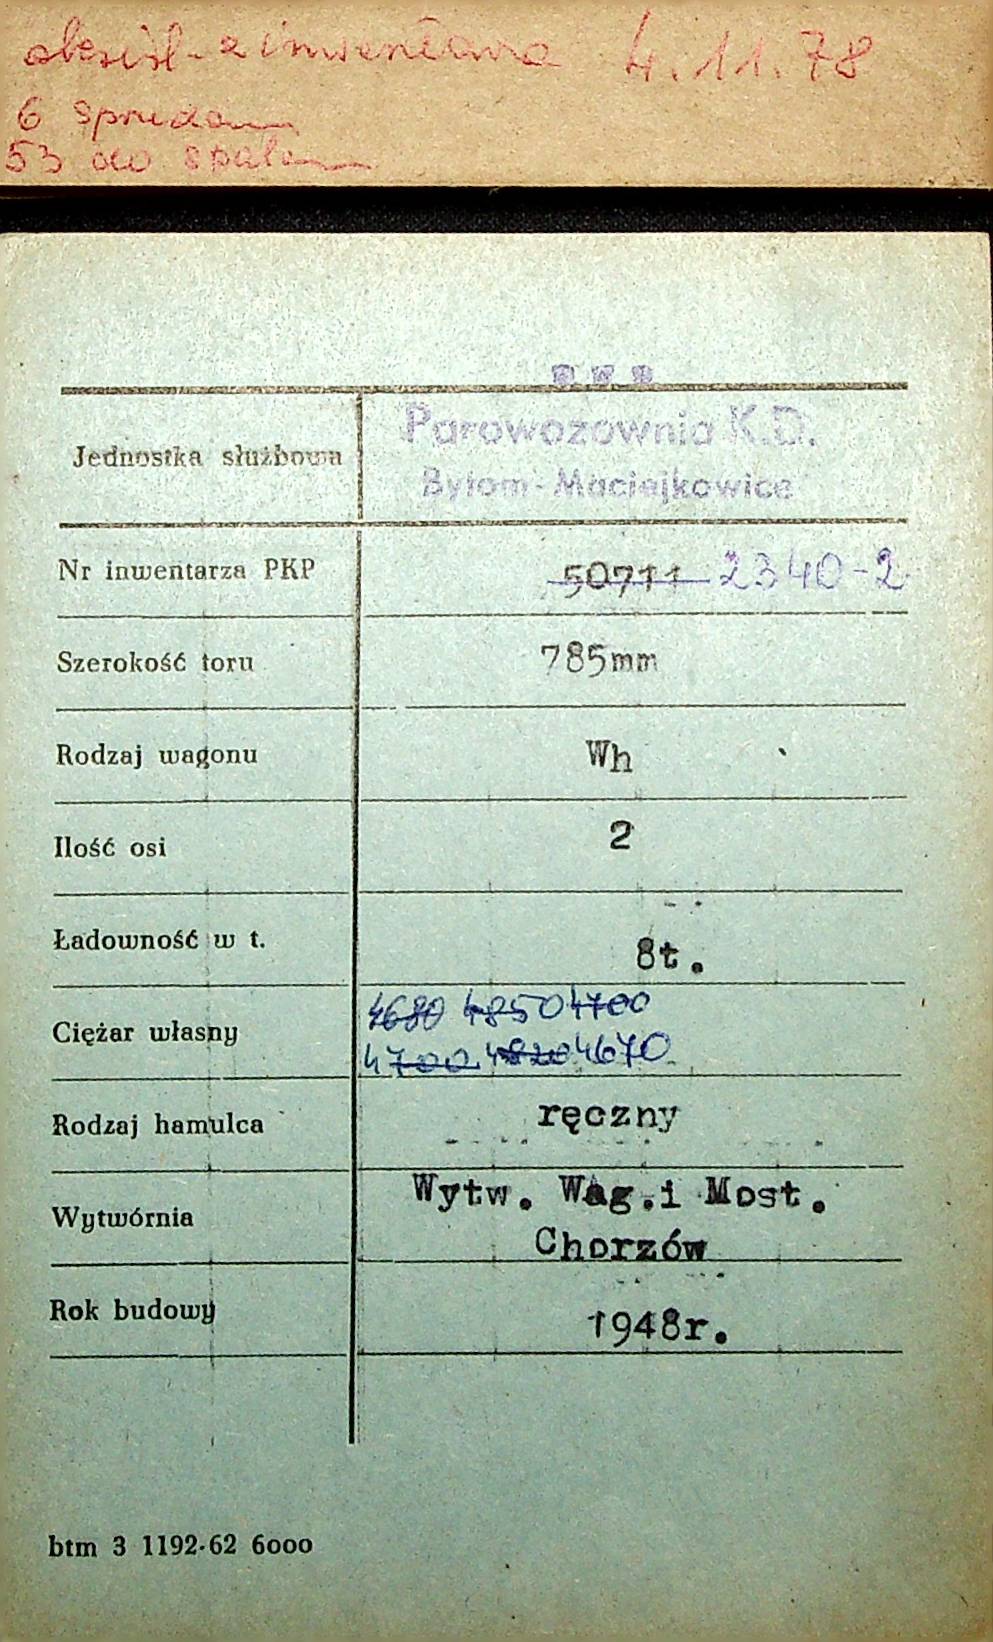 4.11.78
6
53 do
P K P
Parowozownia K.D.
Jednostka służbowa
Bytom-Maciejkowice
Nr inwentarza PKP 50711 2340-2
Szerokość toru 785mm
Rodzaj wagonu Wh
Ilość osi 2
Ładowność w t. 8t.
4680 4850 4700
Ciężar własny
4700 4820 4670
Rodzaj hamulca ręczny
Wytw. Wag.i Most.
Wytwórnia
Chorzów
Rok budowy 1948r.
btm 3 1192-62 6000